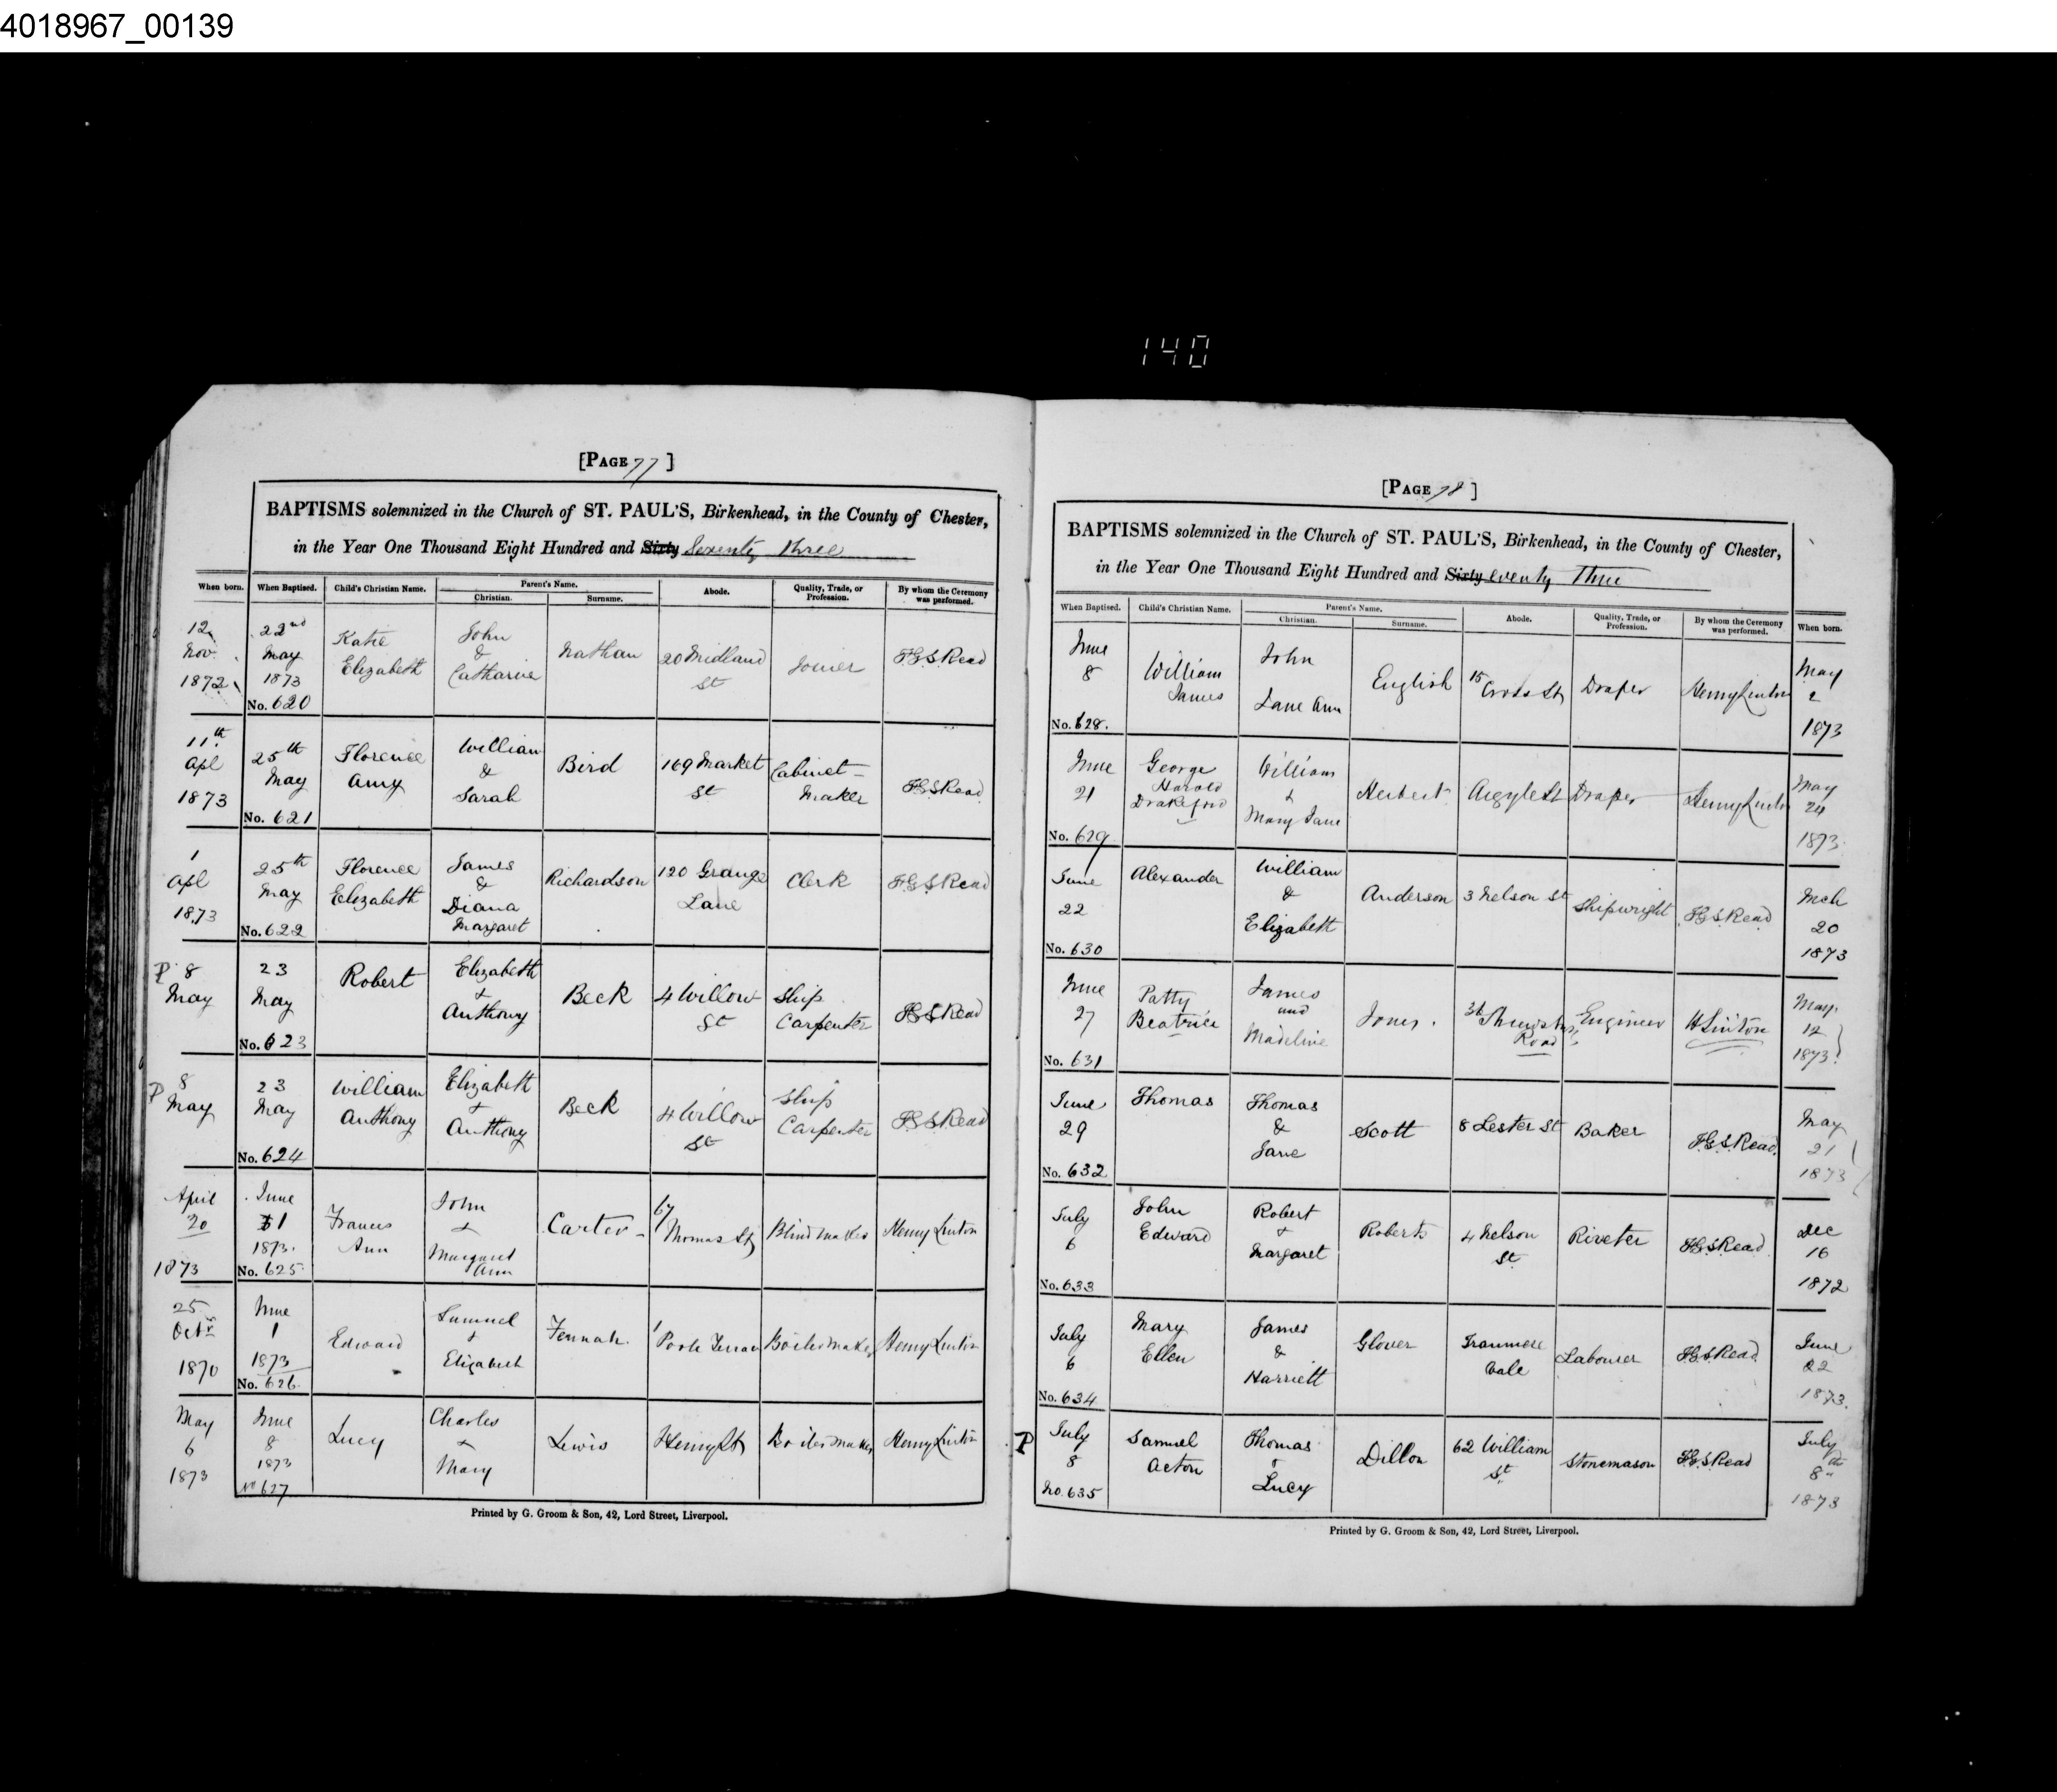 4018967_00139
140
[PAGE 77]
BAPTISMS solemnized in the Church of ST. PAUL'S, Birkenhead, in the County of Chester,
in the Year One Thousand Eight Hundred and Sixty Seventy three
When born. When Baptised. Child's Christian Name. Parent's Name. Christian. Surname. Abode. Quality, Trade, or Profession. By whom the Ceremony was performed.
12 Nov. 1872 22nd May 1873 No. 620 Katie Elizabeth John & Catharine Nathan 20 Midland St Joiner F.G.S. Read
11th Apl 1873 25th May No. 621 Florence Amy William & Sarah Bird 169 Market St Cabinet-Maker F.G.S. Read
1 Apl 1873 25th May No. 622 Florence Elizabeth James & Diana Margaret Richardson 120 Grange Lane Clerk F.G.S. Read
P 8 May 23 May No. 623 Robert Elizabeth + Anthony Beck 4 Willow St Ship Carpenter F.G.S. Read
P 8 May 23 May No. 624 William Anthony Elizabeth + Anthony Beck 4 Willow St Ship Carpenter F.G.S. Read
April 20 1873 June 1 1873. No. 625 Frances Ann John + Margaret Ann Carter 67 Thomas St Blindmaker Henry Linton
25 Octr 1870 June 1 1873 No. 626. Edward Samuel + Elizabeth Fennah. 1 Poole Terrace Boilermaker Henry Linton
May 6 1873 June 8 1873 No 627 Lucy Charles + Mary Lewis Henry St Boilermaker Henry Linton
Printed by G. Groom & Son, 42, Lord Street, Liverpool.
[PAGE 78]
BAPTISMS solemnized in the Church of ST. PAUL'S, Birkenhead, in the County of Chester,
in the Year One Thousand Eight Hundred and Sixty eventy Three
When Baptised. Child's Christian Name. Parent's Name. Christian. Surname. Abode. Quality, Trade, or Profession. By whom the Ceremony was performed. When born.
June 8 No. 628. William James John Jane Ann English 15 Cross St Draper Henry Linton May 2 1873
June 21 No. 629 George Harold Drakeford William + Mary Jane Herbert Argyle St Draper Henry Linton May 24 1873
June 22 No. 630 Alexander William & Elizabeth Anderson 3 Nelson St Shipwright F.G.S. Read Mch 20 1873
June 27 No. 631 Patty Beatrice James and Madeline Jones. Road Engineer H Linton May. 12 1873.
June 29 No. 632 Thomas Thomas & Jane Scott 8 Lester St Baker F.G.S. Read. May 21 1873
July 6 No. 633 John Edward Robert + Margaret Roberts 4 Nelson St Riveter F.G.S. Read Dec 16 1872
July 6 No. 634 Mary Ellen James & Harriett Glover Tranmere Vale Labourer F.G.S. Read June 22 1873.
P July 8 No. 635 Samuel Acton Thomas + Lucy Dillon 62 William St Stonemason F.G.S. Read July 8th 1873
Printed by G. Groom & Son, 42, Lord Street, Liverpool.